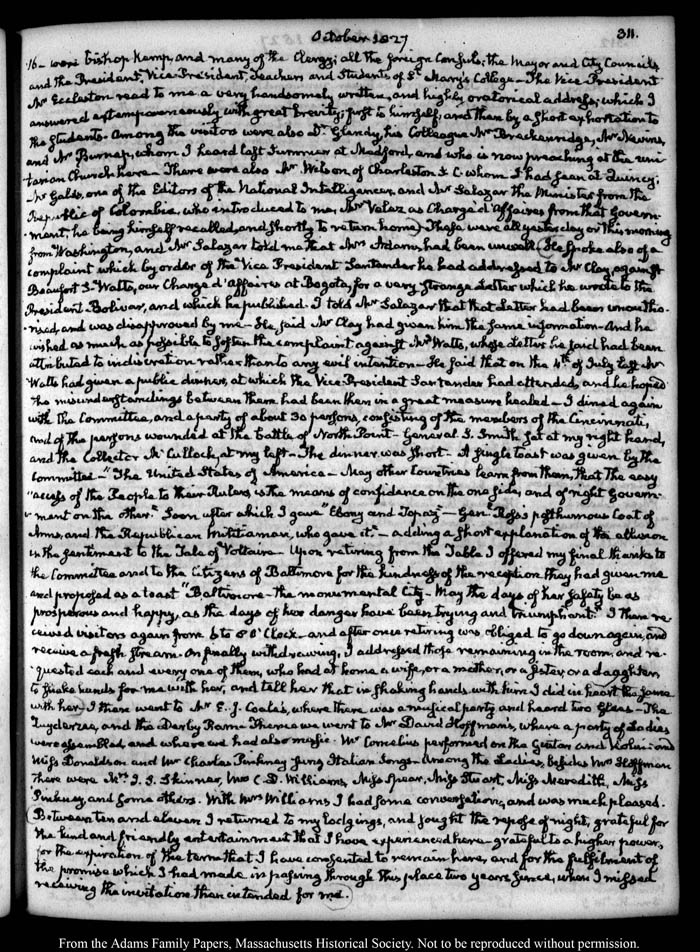 October 1827
311.
16— were Bishop Kemp, and many of the Clergy; all the foreign Consuls; the Mayor and City Councils
and the President, Vice-President, Teachers and Students of St. Mary's College— The Vice-President
Mr Eccleston read to me a very handsomely written, and highly oratorical address; which I
answered extemporaneously with great brevity; first to himself, and then by a short exhortation to
the Students. Among the visitors were also Dr. Glendy, his Colleague Mr Breckenridge, Mr Nevins,
and Mr Burnap, whom I heard last Summer at Medford, and who is now preaching at the Uni-
tarian Church here— There were also Mr Wilson of Charleston S. C. whom I had seen at Quincy;
Mr Gales, one of the Editors of the National Intelligencer, and Mr Salazar the Minister from the
Republic of Colombia, who introduced to me, Mr Velez as Chargé d'Affaires from that Govern-
ment; he being himself recalled, and shortly to return home) These were all yesterday or this morning
from Washington, and Mr Salazar told me that Mrs Adams had been unwell (He spoke also of a
complaint which by order of the Vice President Santander he had addressed to Mr Clay, against
Beaufort T. Watts, our Chargé d'affaires at Bogota, for a very strange Letter which he wrote to the
President Bolivar, and which he published. I told Mr Salazar that that Letter had been unautho-
rised, and was disapproved by me— He said Mr Clay had given him the same information. And he
wished as much as possible to soften the complaint against Mr Watts, whose Letter he said had been
attributed to indiscretion rather than to any evil intention— He said that on the 4th of July last Mr
Watts had given a public dinner, at which the Vice President Santander had attended, and he hoped
the misunderstandings between them had been then in a great measure healed— I dined again
with the Committee, and a party of about 30 persons, consisting of the members of the Cincinnati,
and of the persons wounded at the battle of North Point— General S. Smith sat at my right hand,
and the Collector McCulloch, at my left— The dinner was short— A single toast was given by the
Committee— "The United States of America— May other Countries learn from them, that the easy
"access of the People to their Rulers, is the means of confidence on the one side, and of right Govern-
"ment on the other." Soon after which I gave "Ebony and Topaz— Genl. Ross's posthumous Coat of
Arms, and the Republican Militiaman, who gave it."— adding a short explanation of the allusion
in the sentiment to the Tale of Voltaire— Upon retiring from the Table I offered my final thanks to
the Committee and to the Citizens of Baltimore for the kindness of the reception they had given me
and proposed as a toast "Baltimore— the monumental City— May the days of her safety be as
prosperous and happy, as the days of her danger have been trying and triumphant." I then re-
ceived visitors again from 6 to 8 O'Clock— and after once retiring was obliged to go down again, and
receive a fresh stream. On finally withdrawing, I addressed those remaining in the room, and re-
quested each and every one of them, who had at home a wife, or a mother, or a sister, or a daughter
to shake hands for me with her, and tell her that in shaking hands with him I did in heart the same
with her) I then went to Mr E. J. Coale's, where there was a musical party and heard two Glees— The
and the Derby Ram. Thence we went to Mr David Hoffman's, where a party of Ladies
were assembled, and where we had also music. Mr Cornelius performed on the Guitar and Violin: and
Miss Donaldson and Mr Charles Pinkney sung Italian Songs— Among the Ladies, besides Mrs Hoffman
there were Mrs J. S. Skinner, Mrs C. D. Williams, Miss Spear, Miss Stuart, Miss Meredith, Miss
Pinkney, and some others. With Mrs Williams I had some conversation, and was much pleased.
(Between ten and eleven I returned to my lodgings, and sought the repose of night, grateful for
the kind and friendly entertainment that I have experienced here— grateful to a higher power,
for the expiration of the term that I have consented to remain here, and for the fulfilment of
the promise which I had made in passing through this place two years since, when I missed
receiving the invitation then intended for me.)
From the Adams Family Papers, Massachusetts Historical Society. Not to be reproduced without permission.